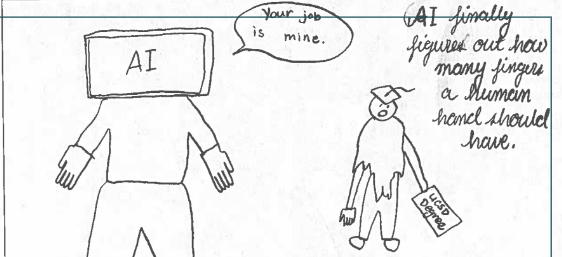 Your job
is mine.
AI finally
figures out how
many fingers
a human
hand should
have.
AI
UCSD
Degree